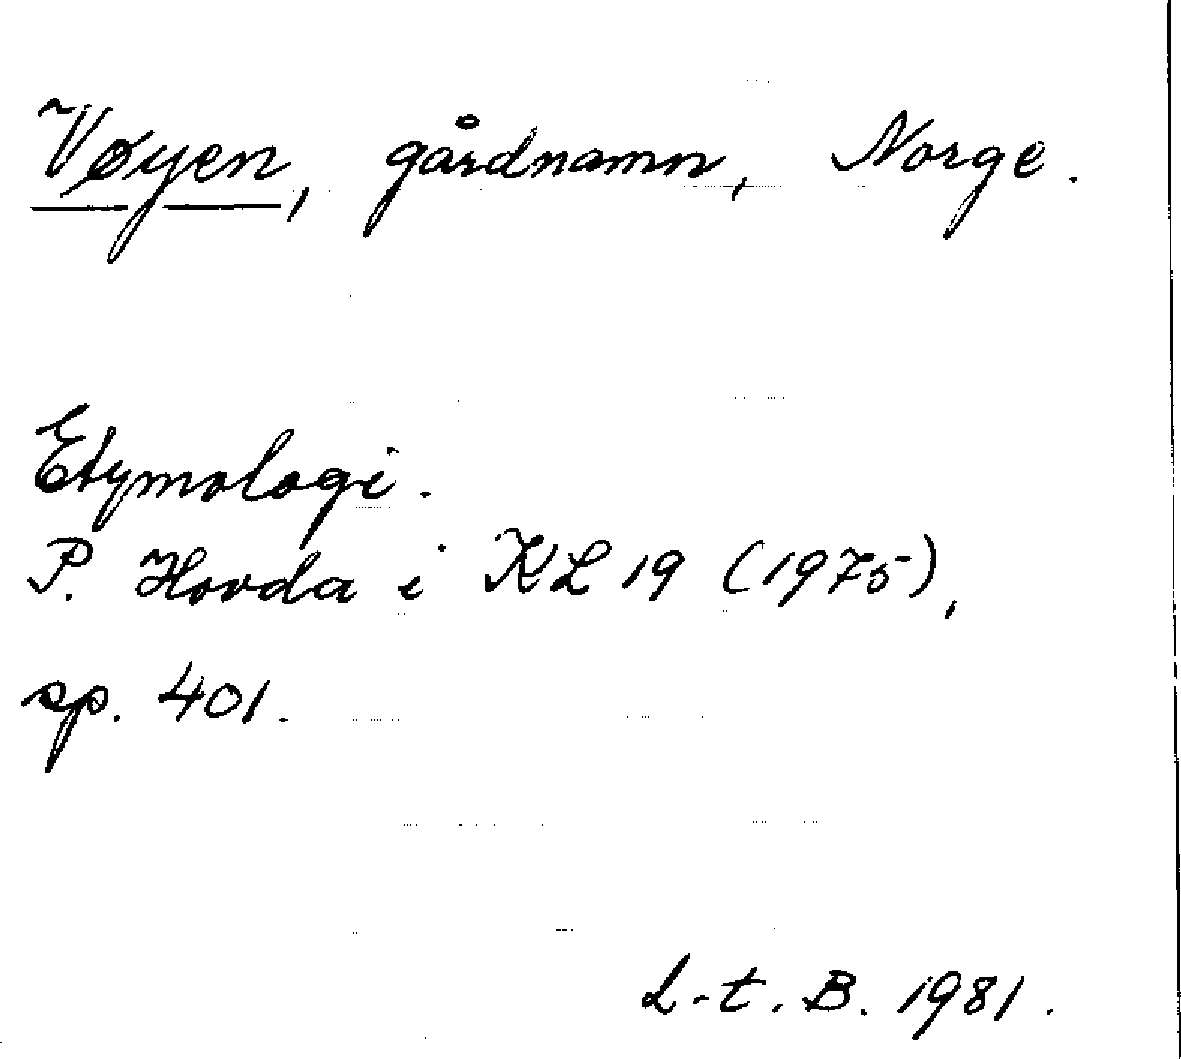 Vøyen, gårdnamn, Norge.
Etymologi.
P. Hovda i KL 19 (1975),
sp. 401.
L-t. B. 1981.